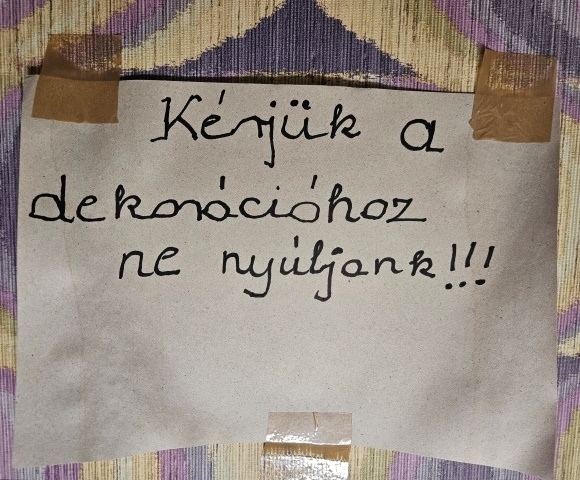 Kérjük a
dekorációhoz
ne nyúljank!!!